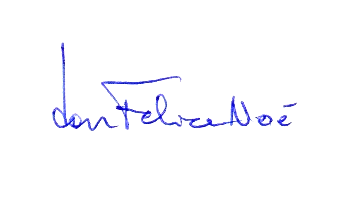 don Felice Noè